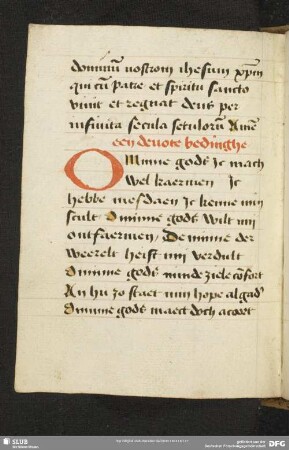 dominum nostrum ihesum xpm
qui cu patre et spiritu sancto
vivit et regnat deus per
infinita secula seculorum Amē
een devote bedinghe
O Minne gods ic mach
wel kaermen Ic
hebbe mesdaen ic kenne min
scult O minne gods wilt mi
ontfaermen De minne der
weerelt heift mi verdult
O minne gods minde ziele cōfort
An hu zo staet min hope al gads
O minne gods maect doch acoort
SLUB
DFG